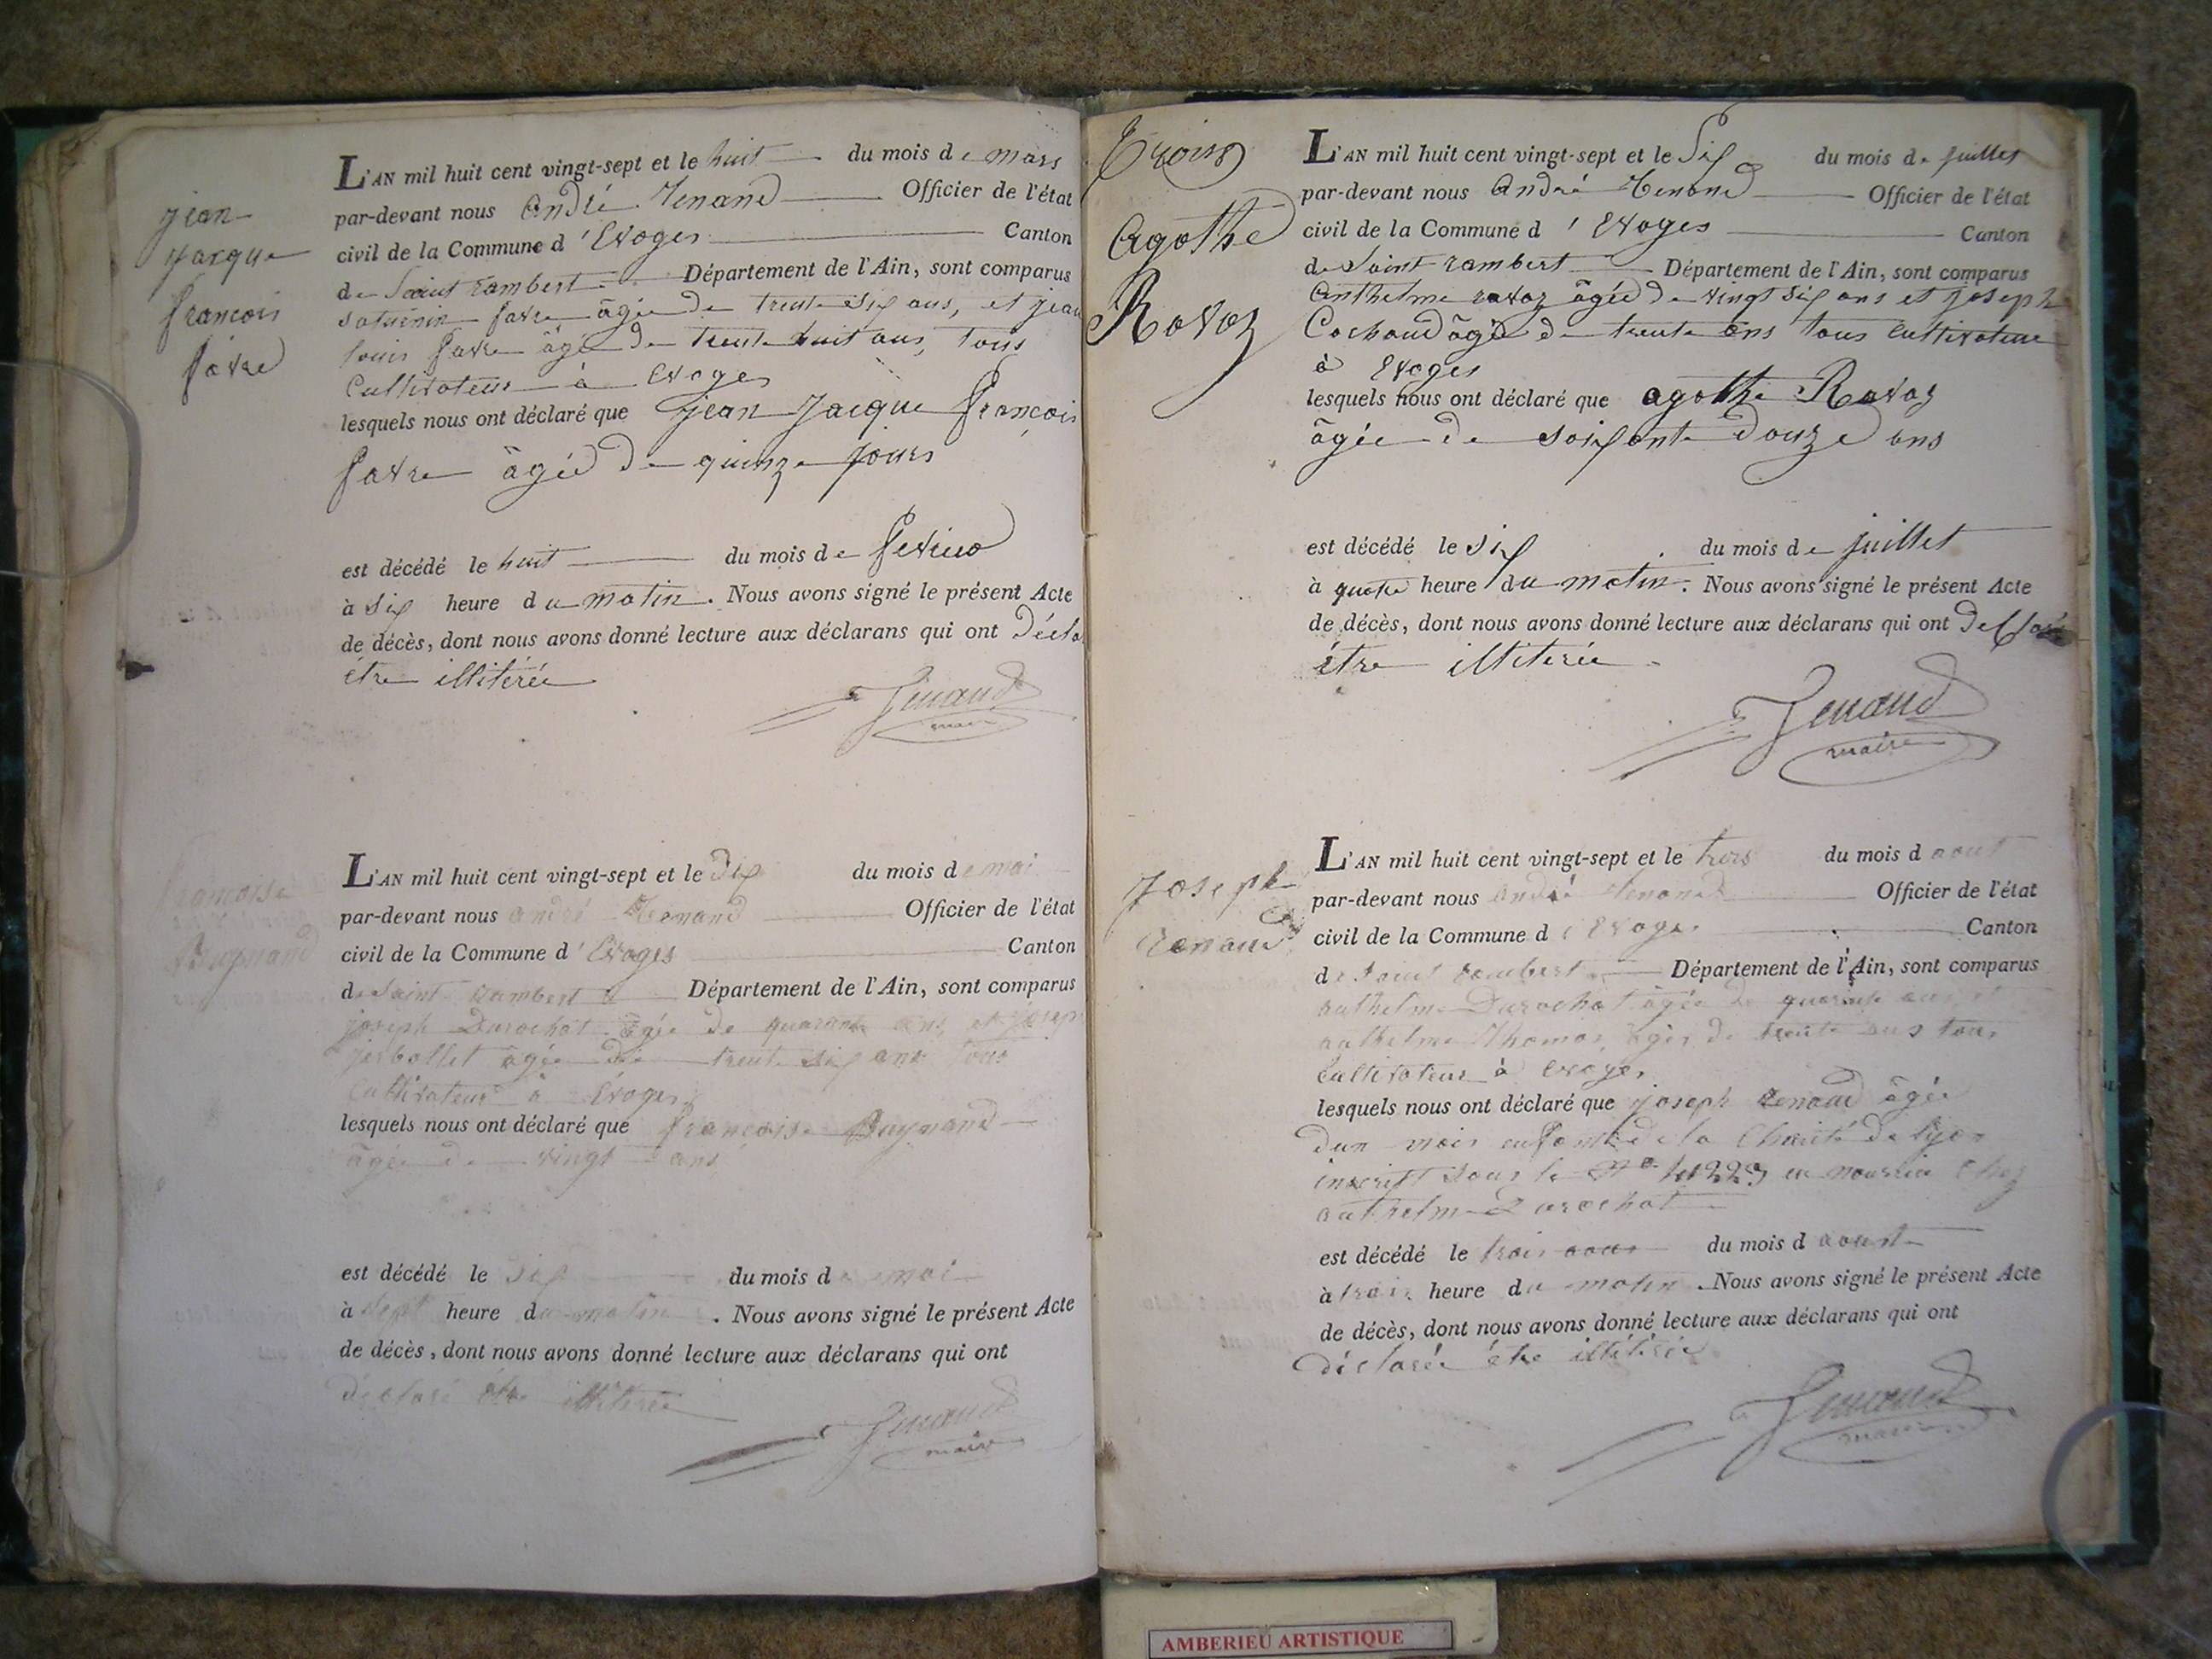 jean
jacque
francois
favre
L'AN mil huit cent vingt-sept et le huit du mois de mars
par-devant nous André Tenand Officier de l'état
civil de la Commune d'Evoges Canton
de Saint rambert Département de l'Ain, sont comparus
saturnin favre âgée de trente six ans, et jean
louis favre âgé de trente huit ans, tous
Cultivateur à Evoges
lesquels nous ont déclaré que jean jacque françois
favre âgée de quinze jours
est décédé le huit du mois de fevrier
à six heure du matin. Nous avons signé le présent Acte
de décès, dont nous avons donné lecture aux déclarans qui ont décla
être illitérée
Tenand
maire
francoise
L'AN mil huit cent vingt-sept et le dix du mois de mai
par-devant nous andré Tenand Officier de l'état
civil de la Commune d'Evoges Canton
de Saint rambert Département de l'Ain, sont comparus
joseph Durochat âgée de quarante ans et joseph
âgée de trente six ans tous
Cultivateur à Evoges
lesquels nous ont déclaré que françoise
âgée de vingt ans
est décédé le du mois de mai
à sept heure du matin. Nous avons signé le présent Acte
de décès, dont nous avons donné lecture aux déclarans qui ont
déclaré être illitérée
Tenand
maire
Trois
Agathe
Ravoz
L'AN mil huit cent vingt-sept et le Six du mois de juillet
par-devant nous André Tenand Officier de l'état
civil de la Commune d'Evoges Canton
de Saint rambert Département de l'Ain, sont comparus
Anthelme ravoz âgée de vingt six ans et joseph
Cochaud âgé de trente ans tous Cultivateur
à Evoges
lesquels nous ont déclaré que agathe Ravoz
âgée de soixante douze ans
est décédé le six du mois de juillet
à quatre heure du matin. Nous avons signé le présent Acte
de décès, dont nous avons donné lecture aux déclarans qui ont
être illiterée
Tenand
maire
Joseph
renaud
L'AN mil huit cent vingt-sept et le trois du mois d aout
par-devant nous André Tenand Officier de l'état
civil de la Commune d'Evoges Canton
de Saint rambert Département de l'Ain, sont comparus
anthelme Durochat âgée de quarante ans et
anthelme Thomas âgée de trente ans tous
Cultivateur à Evoges
lesquels nous ont déclaré que joseph renaud âgée
dun mois enfant de la Charité de lyon
inscritt sous le N° en nourrice chez
anthelme Durochat
est décédé le trois du mois d aoust
à trois heure du matin. Nous avons signé le présent Acte
de décès, dont nous avons donné lecture aux déclarans qui ont
déclarée être illitérée
Tenand
maire
AMBERIEU ARTISTIQUE